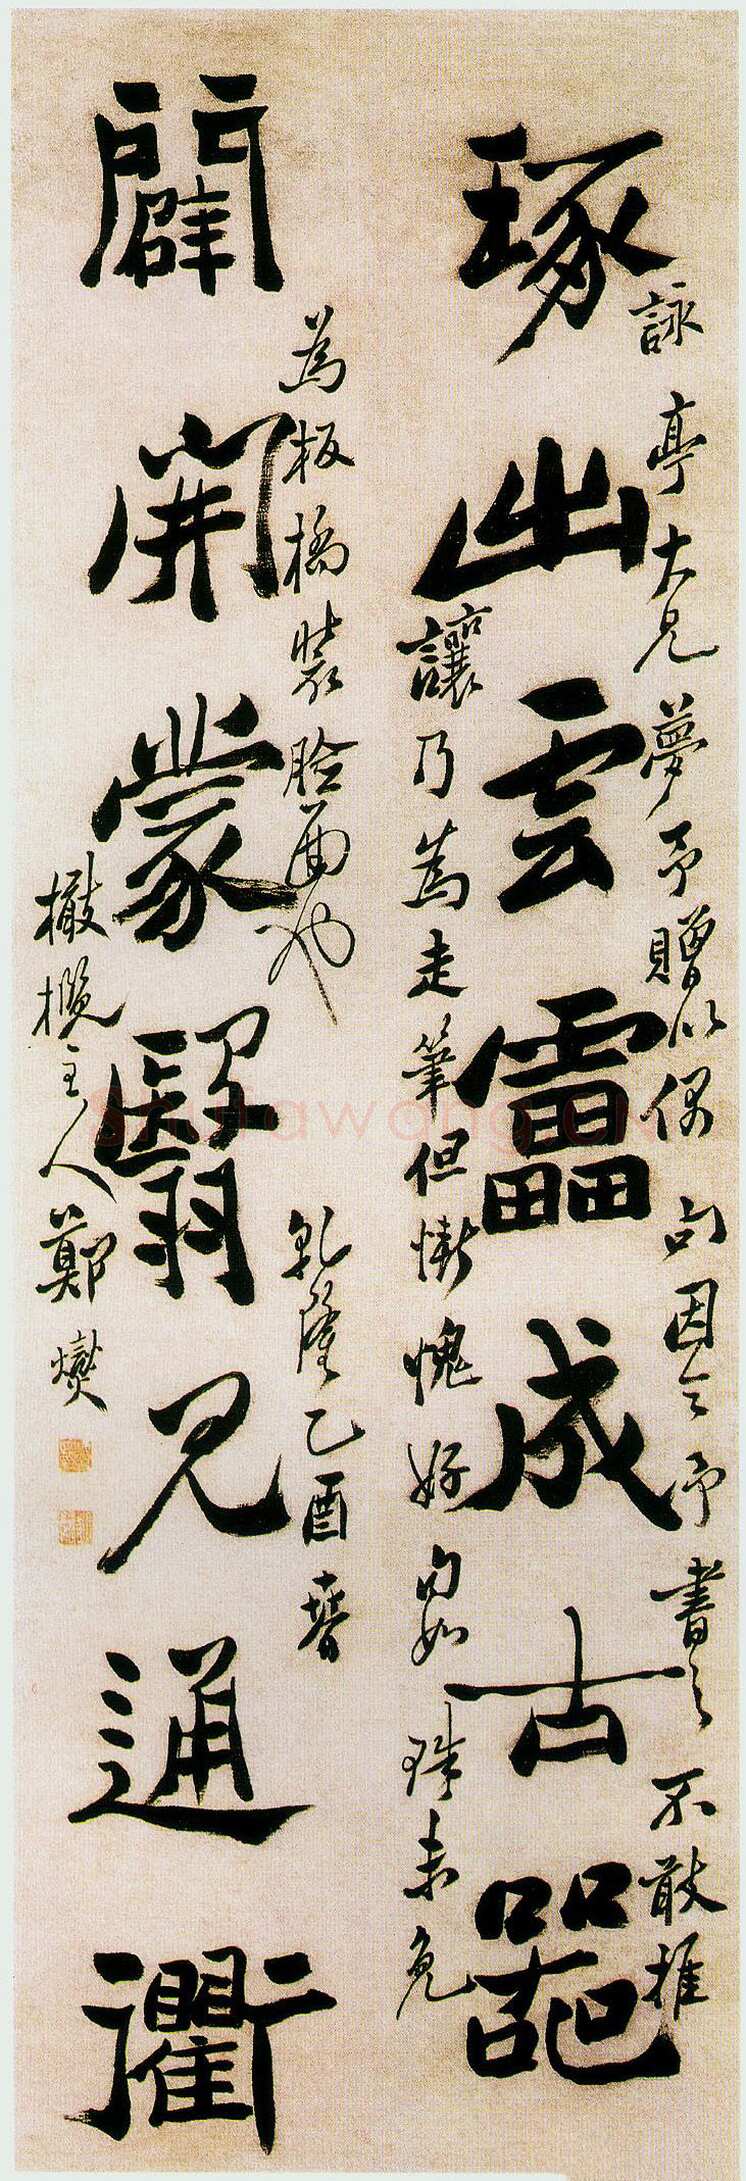 琢出雲雷成古器
闢開蒙翳見通衢
詠亭大兄夢予贈以偶句因令予書之不敢推
讓乃為走筆但慚愧好句如珠未免
為板橋裝臉面也
乾隆乙酉春
橄欖主人鄭燮
shufawang.cn